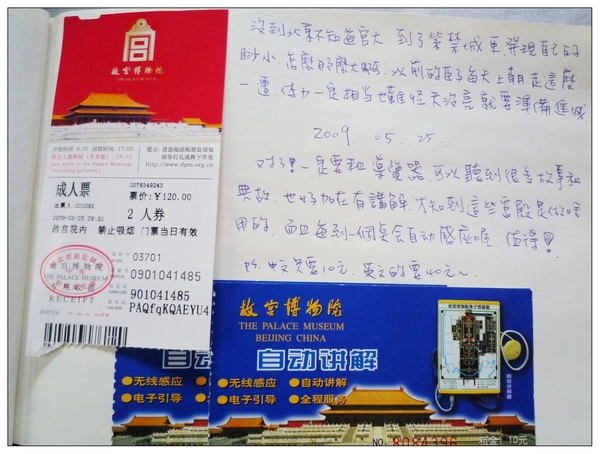 故宫博物院
THE PALACE MUSEUM
开馆时间 8:30 闭馆时间 17:00
停止入馆时间(含珍宝馆) 16:10
Last entry to the Palace Museum
(including galleries)
提示：请您阅读购票处须知
副券打孔或撕下作废
http://www.dpm.org.cn
成人票
0078349243
票价:￥120.00
2009-05-25 09:21
2 人券
故宫院内 禁止吸烟 门票当日有效
03701
0901041485
901041485
PAQfqKQAEYU4
故宫博物院
THE PALACE MUSEUM
RECEIPT
沒到北京不知道官大,到了紫禁城更發現自己的
渺小,怎麼那麼大啊,以前的臣子每天上朝走這麼
一遭,體力一定相當
天沒亮就要準備進城
2009 05. 25.
一定要租導覽器,可以聽到很多故事和
典故,也好加在有講解,才知到這些宮殿是做啥
用的,而且每到一個点會自動感应喔,值得!!
PS. 中文只要10元,英文的要40元~.
故宫博物院
THE PALACE MUSEUM
BEIJING CHINA
自动讲解
●无线感应 ●自动讲解
●电子引导 ●全程服务
自动讲解器
NO. 8084396
租金：10元
自
●无线感应
●电子引导